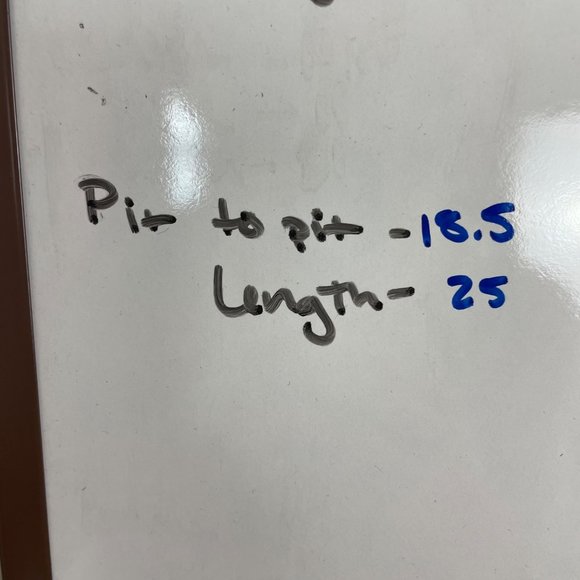 Pit to pit - 18.5
Length - 25